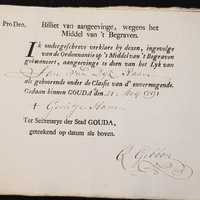 Pro Deo.
Billiet van aangeevinge, wegens het
Middel van 't Begraven.
IK ondergeschreve verklare by dezen, ingevolge
van de Ordonnantie op 't Middel van 't Begraven
geëmaneert, aangevinge te doen van het Lyk van
Jan van Dyk
als gehoorende onder de Classis van d' onvermogende.
Gedaan binnen GOUDA den 21 Mey 1791
+ Gerritje
Ter Secretarye der Stad GOUDA,
geteekend op datum als boven.